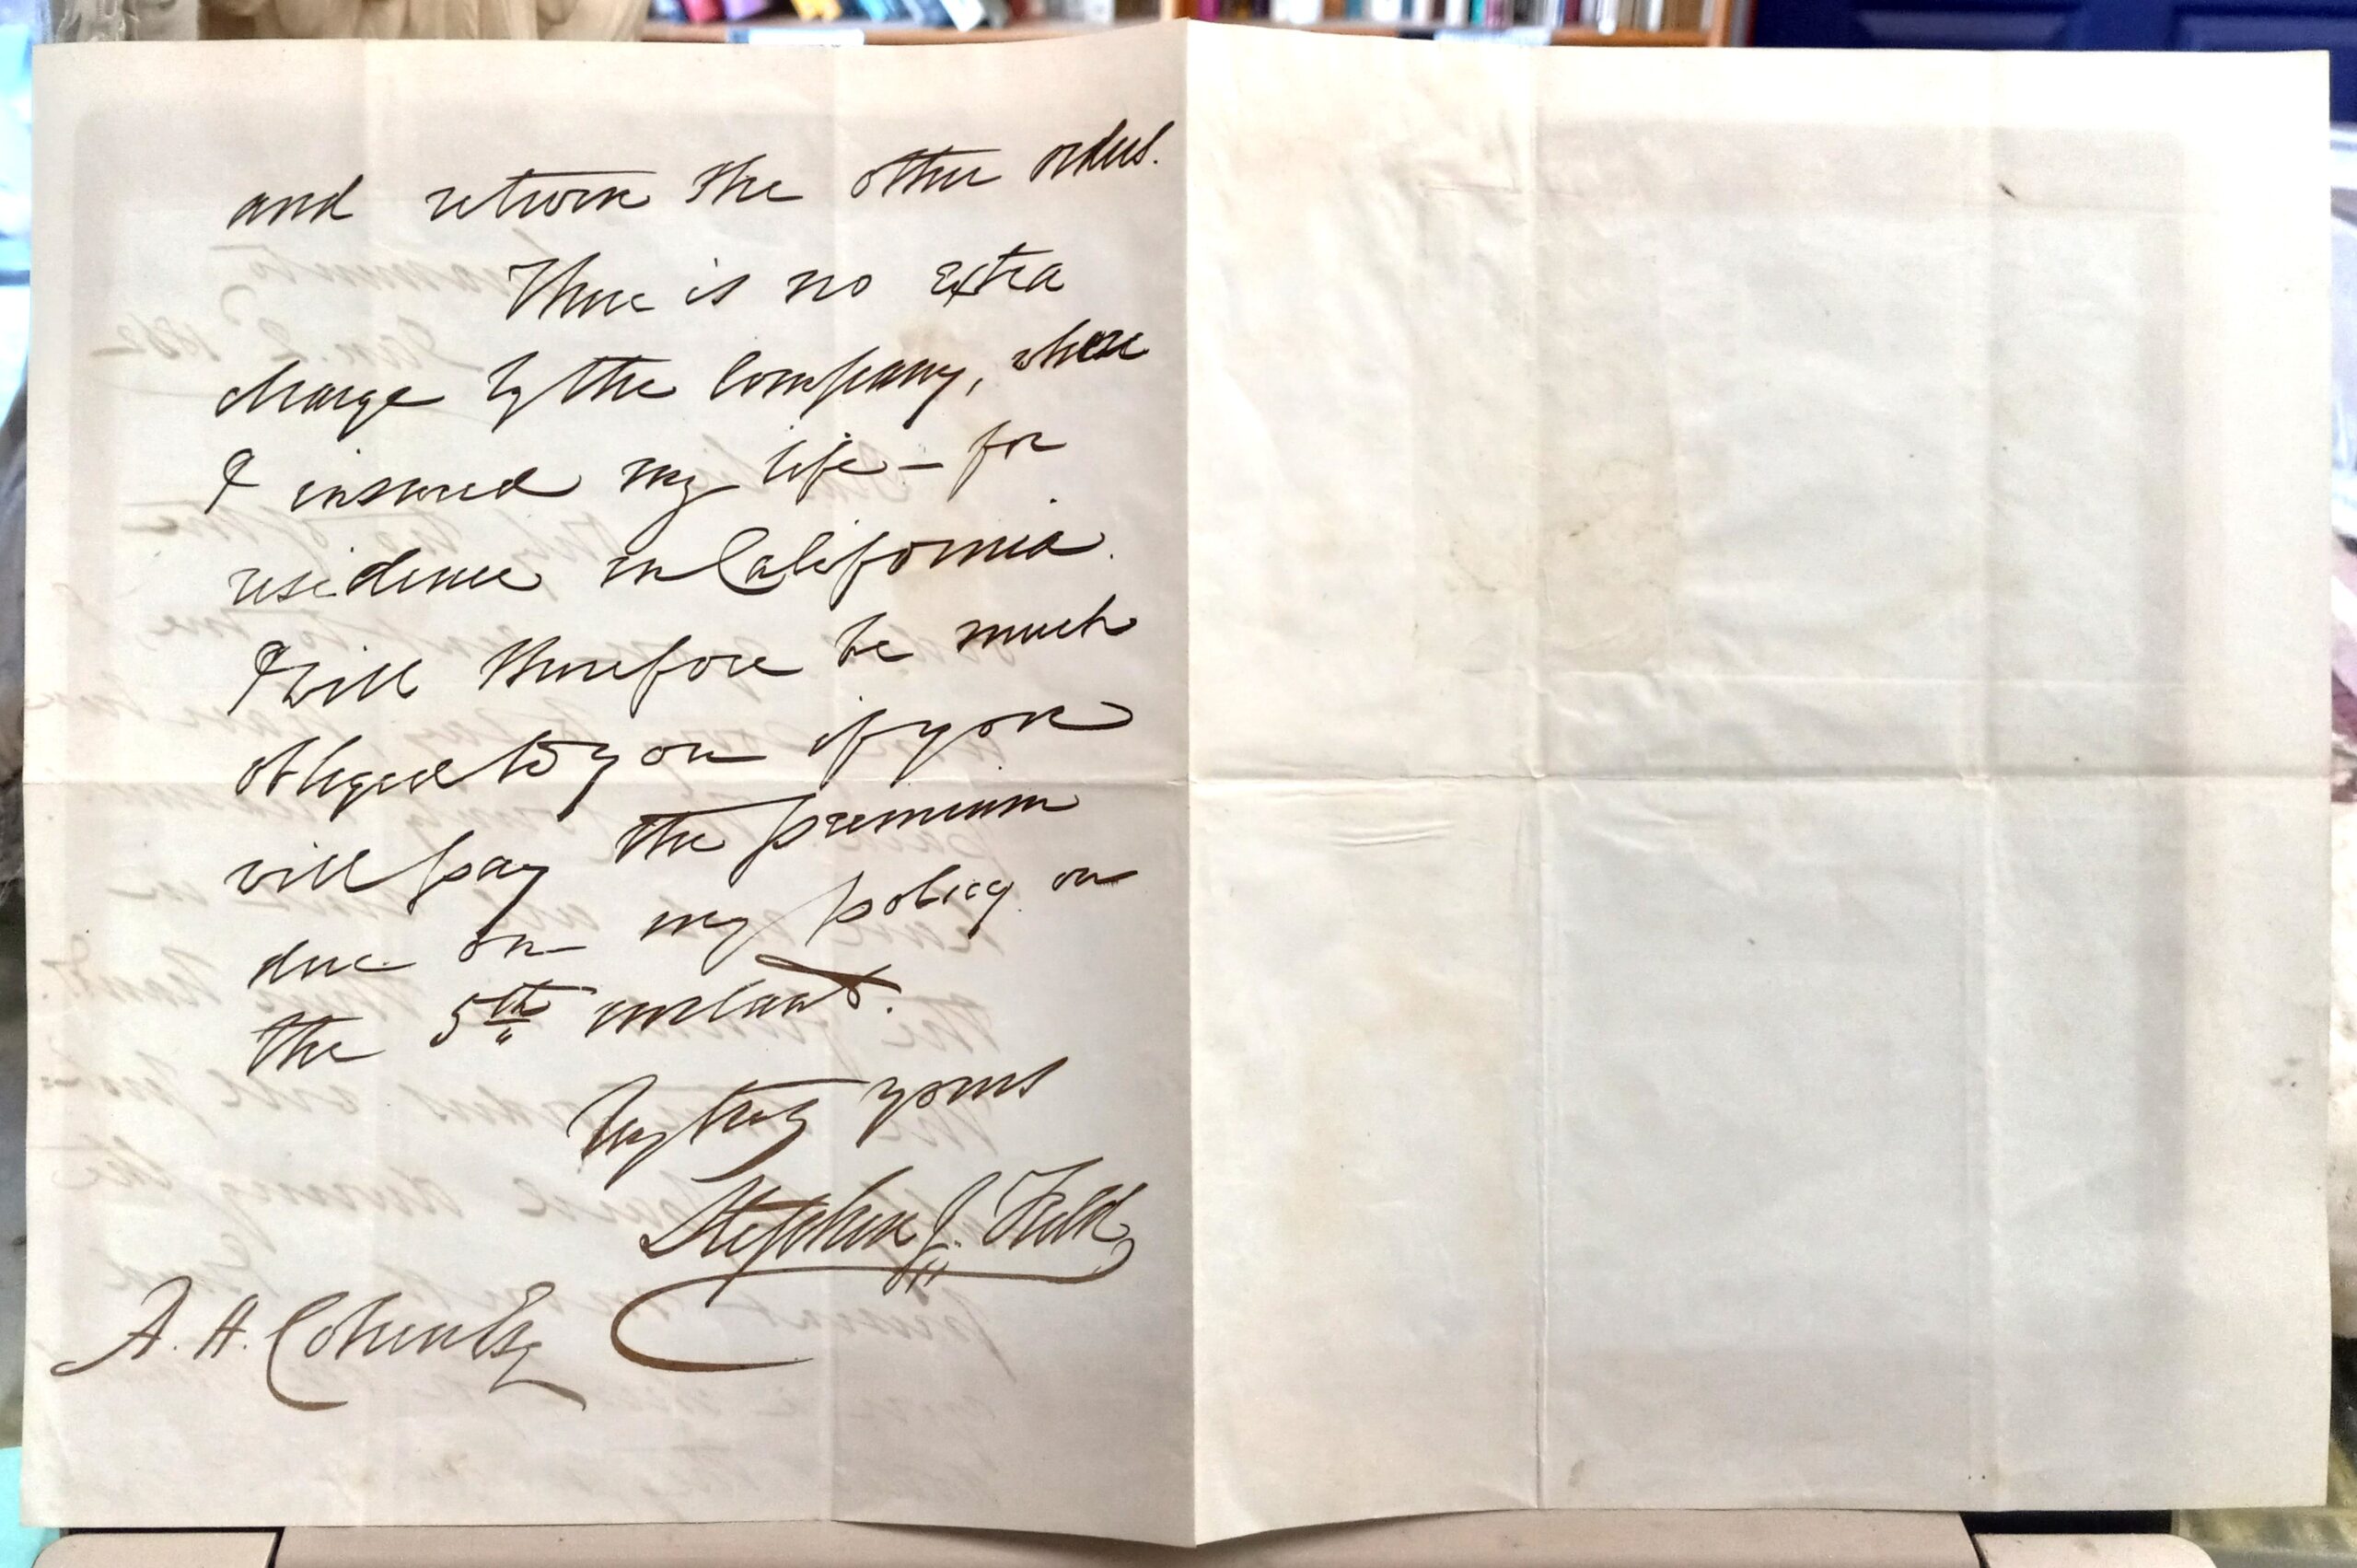 and return the other orders.
There is no extra
charge by the company, where
I insured my life – for
residence in California.
I will therefore be much
obliged to you if you
will pay the premium
due on my policy on
the 5th instant.
Very truly yours
Stephen J. Field
A. H. Cohen Esq